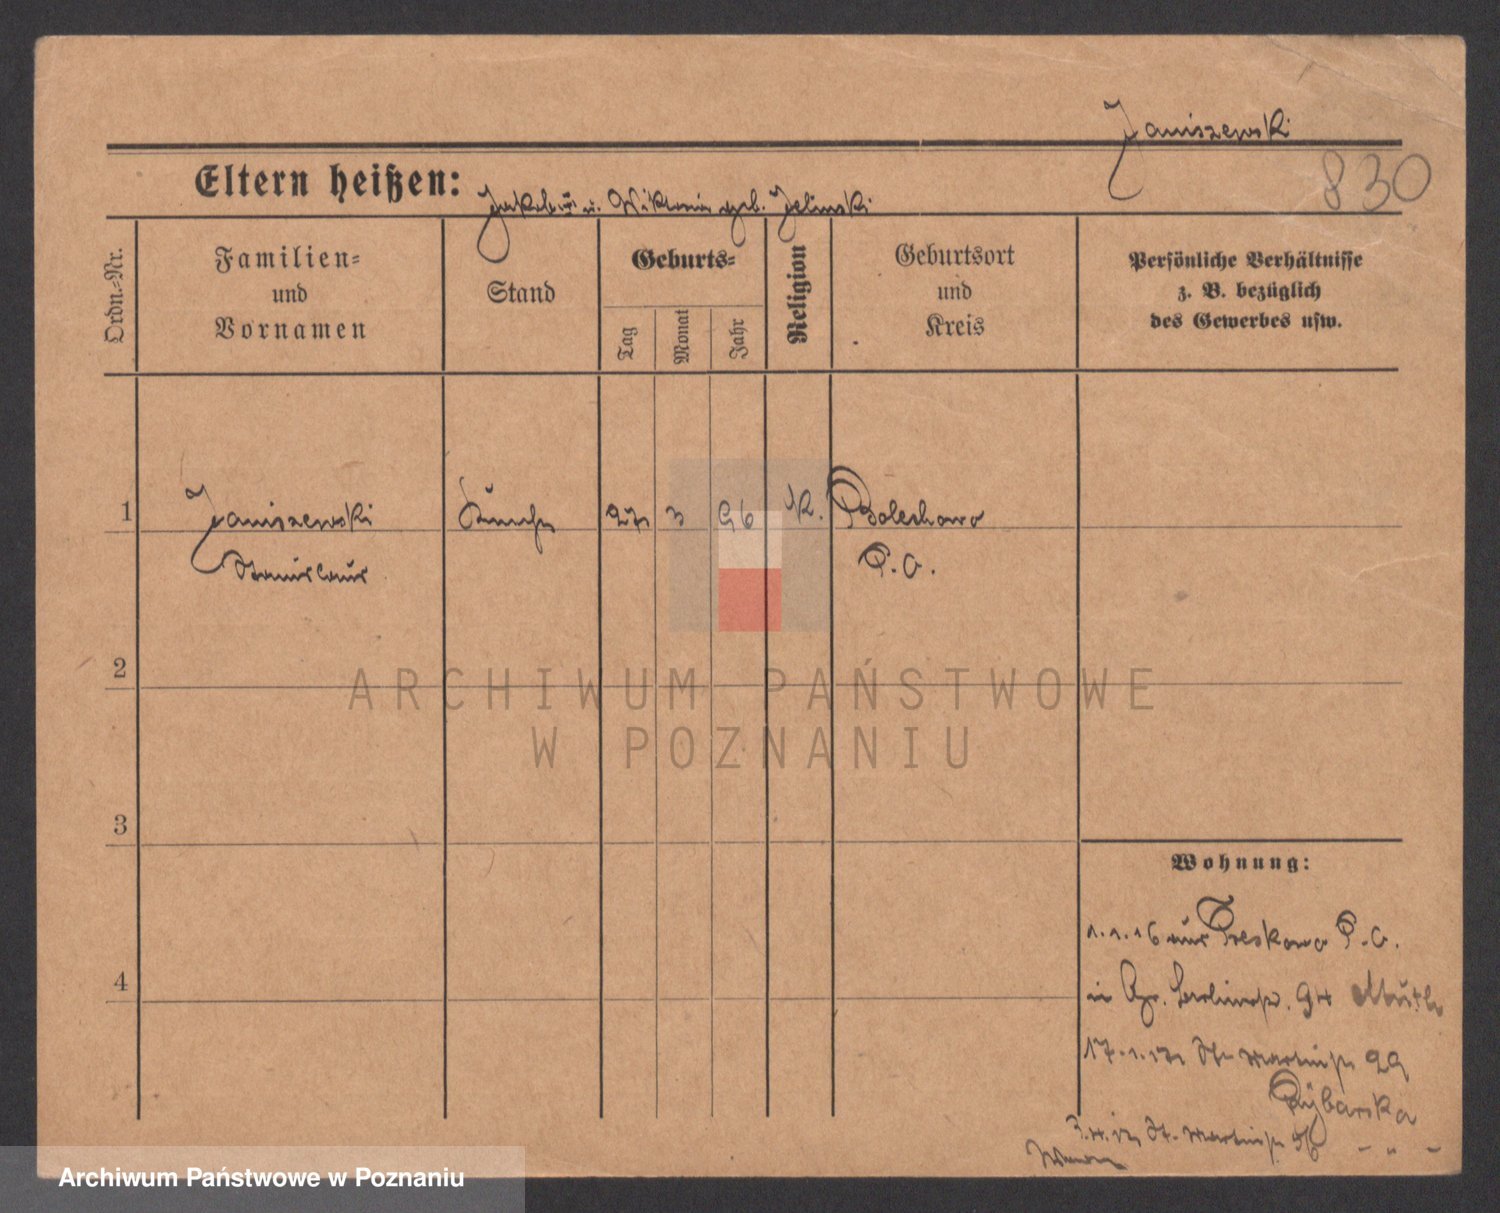 Janiszewski
830
Eltern heißen: Jakob u. Viktoria geb. Jelinski
Ordn.-Nr.
Familien-
und
Vornamen
Stand
Geburts-
Tag
Monat
Jahr
Religion
Geburtsort
und
Kreis
Persönliche Verhältnisse
z. B. bezüglich
des Gewerbes usw.
1 Janiszewski 27 3 96 K. Bolechowo
Stanislaus P. O.
2
ARCHIWUM PAŃSTWOWE
W POZNANIU
3
Wohnung:
1.1.16 aus Treskowo P. O.
4
in Gr. Berlinerstr. 94
17.1.17 St. Martinstr 29
Rybarska
St. Martinstr - " -
Archiwum Państwowe w Poznaniu